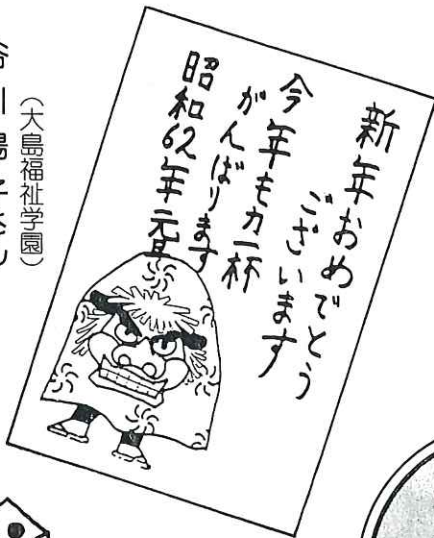 新年おめでとう
ございます
今年も力一杯
がんばります
昭和62年元旦
(大島福祉学園)